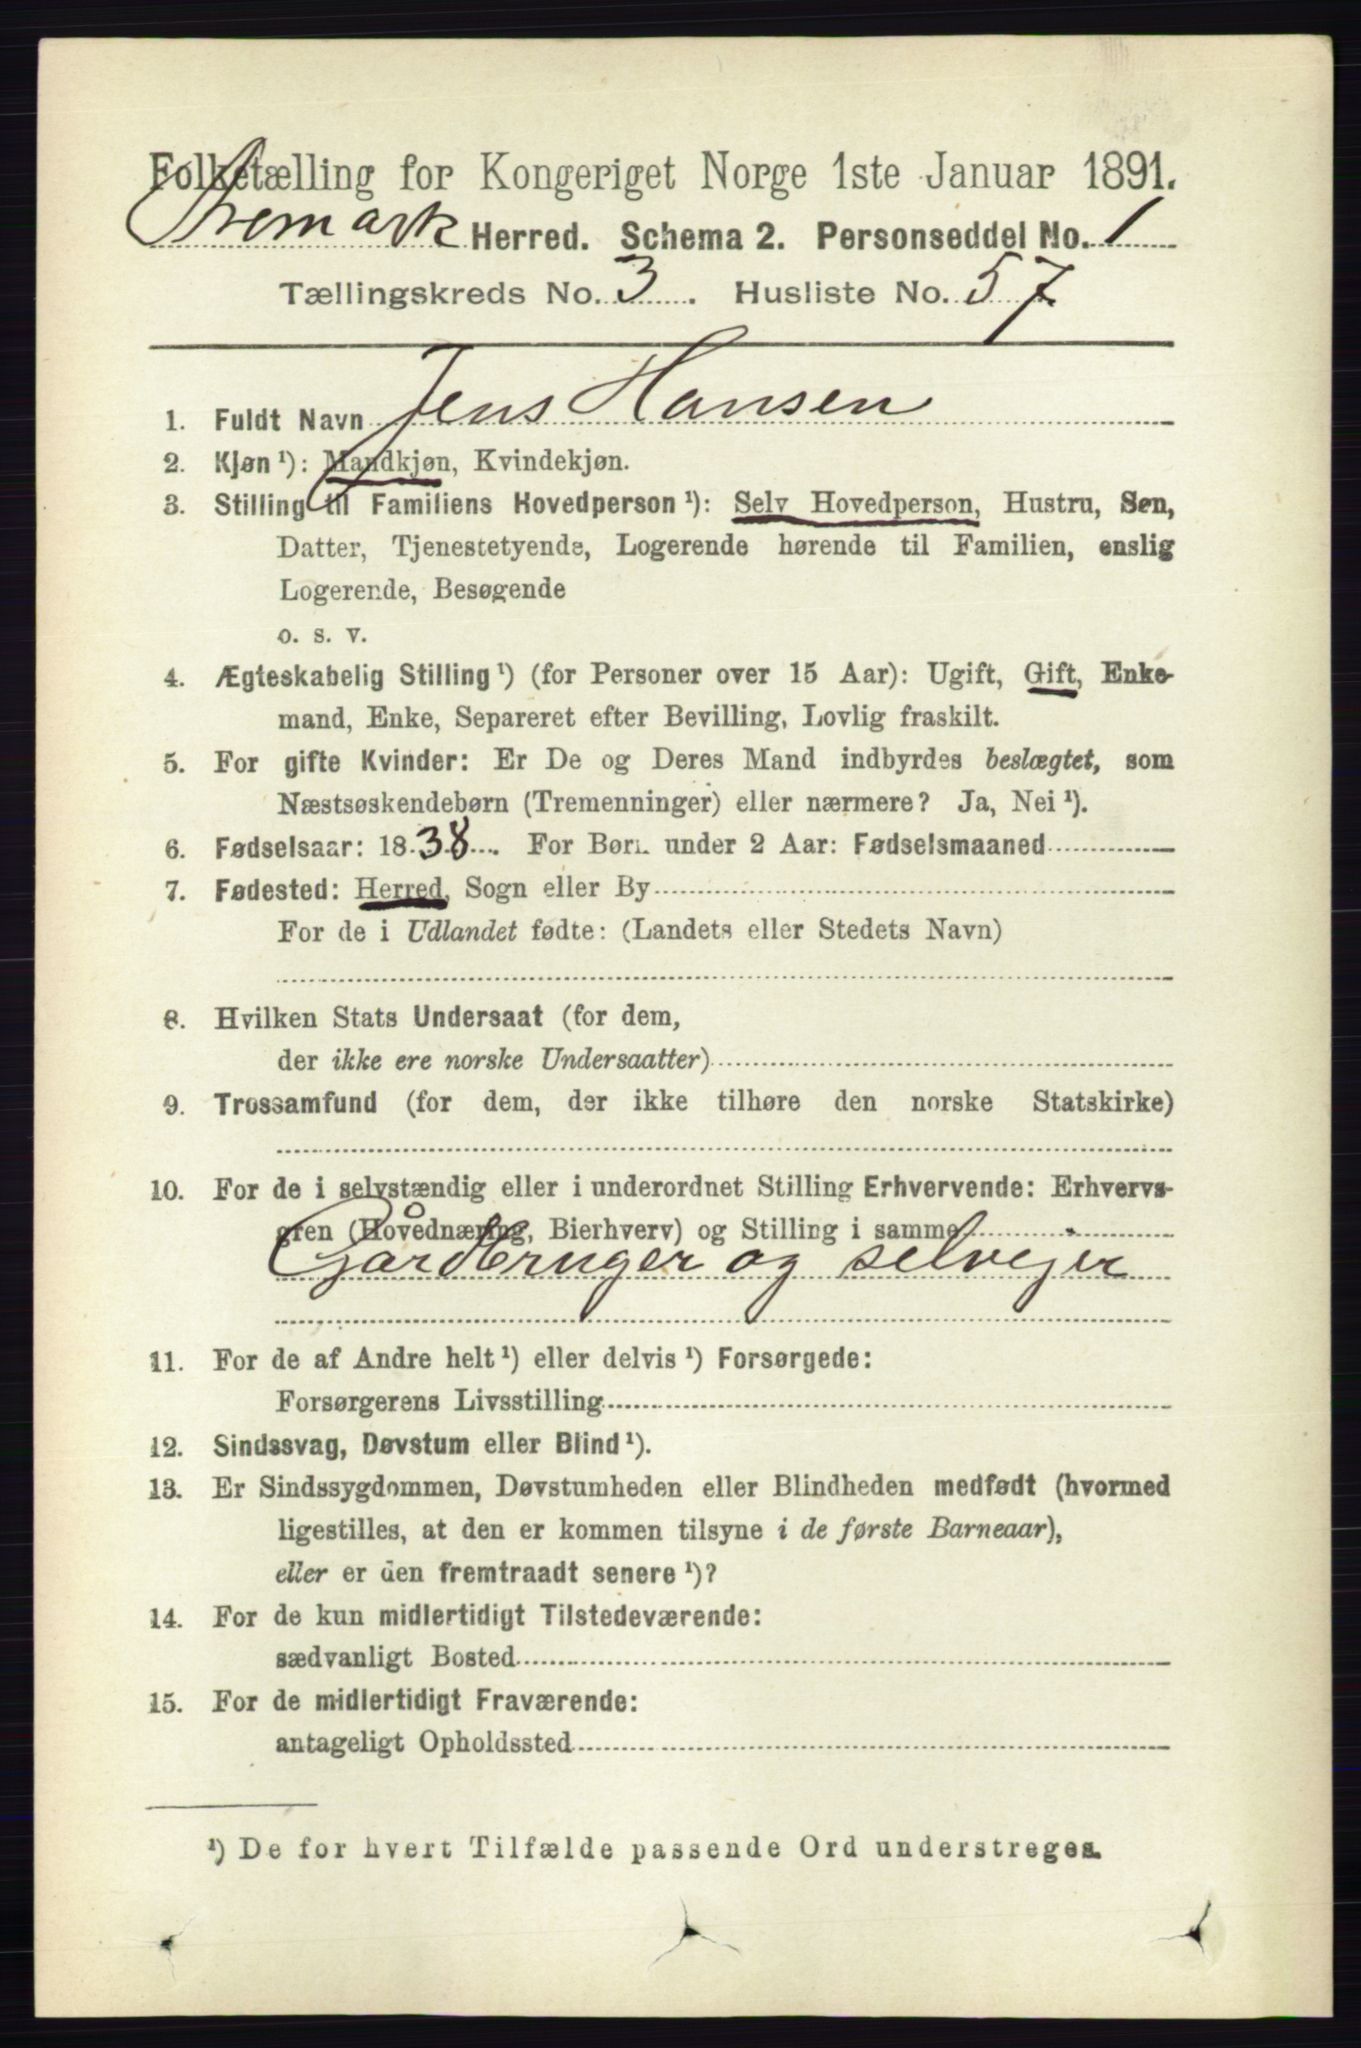 Folketælling for Kongeriget Norge 1ste Januar 1891.
Aremark Herred. Schema 2. Personseddel No. 1
Tællingskreds No. 3. Husliste No. 57
1. Fuldt Navn Jens Hansen
2. Kjøn ¹): Mandkjøn, Kvindekjøn.
3. Stilling til Familiens Hovedperson ¹): Selv Hovedperson, Hustru, Søn,
Datter, Tjenestetyende, Logerende hørende til Familien, enslig
Logerende, Besøgende
o. s. v.
4. Ægteskabelig Stilling ¹) (for Personer over 15 Aar): Ugift, Gift, Enke-
mand, Enke, Separeret efter Bevilling, Lovlig fraskilt.
5. For gifte Kvinder: Er De og Deres Mand indbyrdes beslægtet, som
Næstsøskendebørn (Tremenninger) eller nærmere? Ja, Nei ¹).
6. Fødselsaar: 1838. For Børn under 2 Aar: Fødselsmaaned
7. Fødested: Herred, Sogn eller By
For de i Udlandet fødte: (Landets eller Stedets Navn)
8. Hvilken Stats Undersaat (for dem,
der ikke ere norske Undersaatter)
9. Trossamfund (for dem, der ikke tilhøre den norske Statskirke)
10. For de i selvstændig eller i underordnet Stilling Erhvervende: Erhvervs-
gren (Hovednæring, Bierhverv) og Stilling i samme
Gårdbruger og selvejer
11. For de af Andre helt ¹) eller delvis ¹) Forsørgede:
Forsørgerens Livsstilling
12. Sindssvag, Døvstum eller Blind ¹).
13. Er Sindssygdommen, Døvstumheden eller Blindheden medfødt (hvormed
ligestilles, at den er kommen tilsyne i de første Barneaar),
eller er den fremtraadt senere ¹)?
14. For de kun midlertidigt Tilstedeværende:
sædvanligt Bosted
15. For de midlertidigt Fraværende:
antageligt Opholdssted
¹) De for hvert Tilfælde passende Ord understreges.